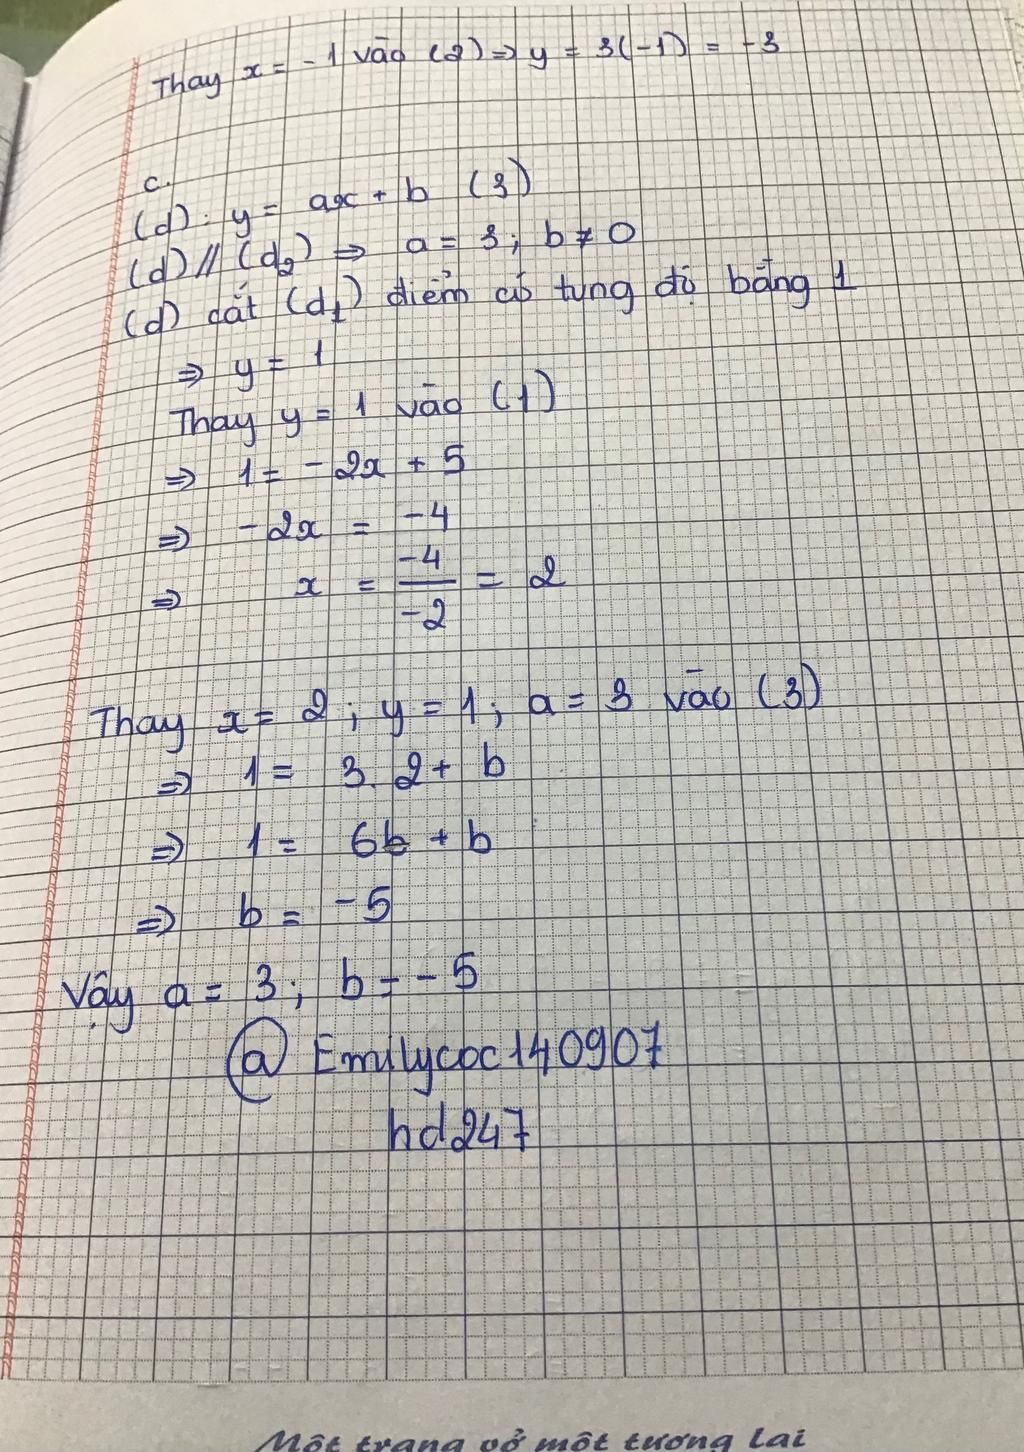 Thay x = -1 vào (2) ⇒ y = 3(-1) = -3
c.
(d): y = ax + b (3)
(d) // (d₂) ⇒ a = 3; b ≠ 0
(d) cắt (d₁) điểm có tung độ bằng 1
⇒ y = 1
Thay y = 1 vào (1)
⇒ 1 = -2x + 5
⇒ -2x = -4
⇒ x = -4/-2 = 2
Thay x = 2; y = 1; a = 3 vào (3)
⇒ 1 = 3.2 + b
⇒ 1 = 6 + b
⇒ b = -5
Vậy a = 3; b = -5
@ Emilycoc140907
hd247
Một trang vở một tương lai